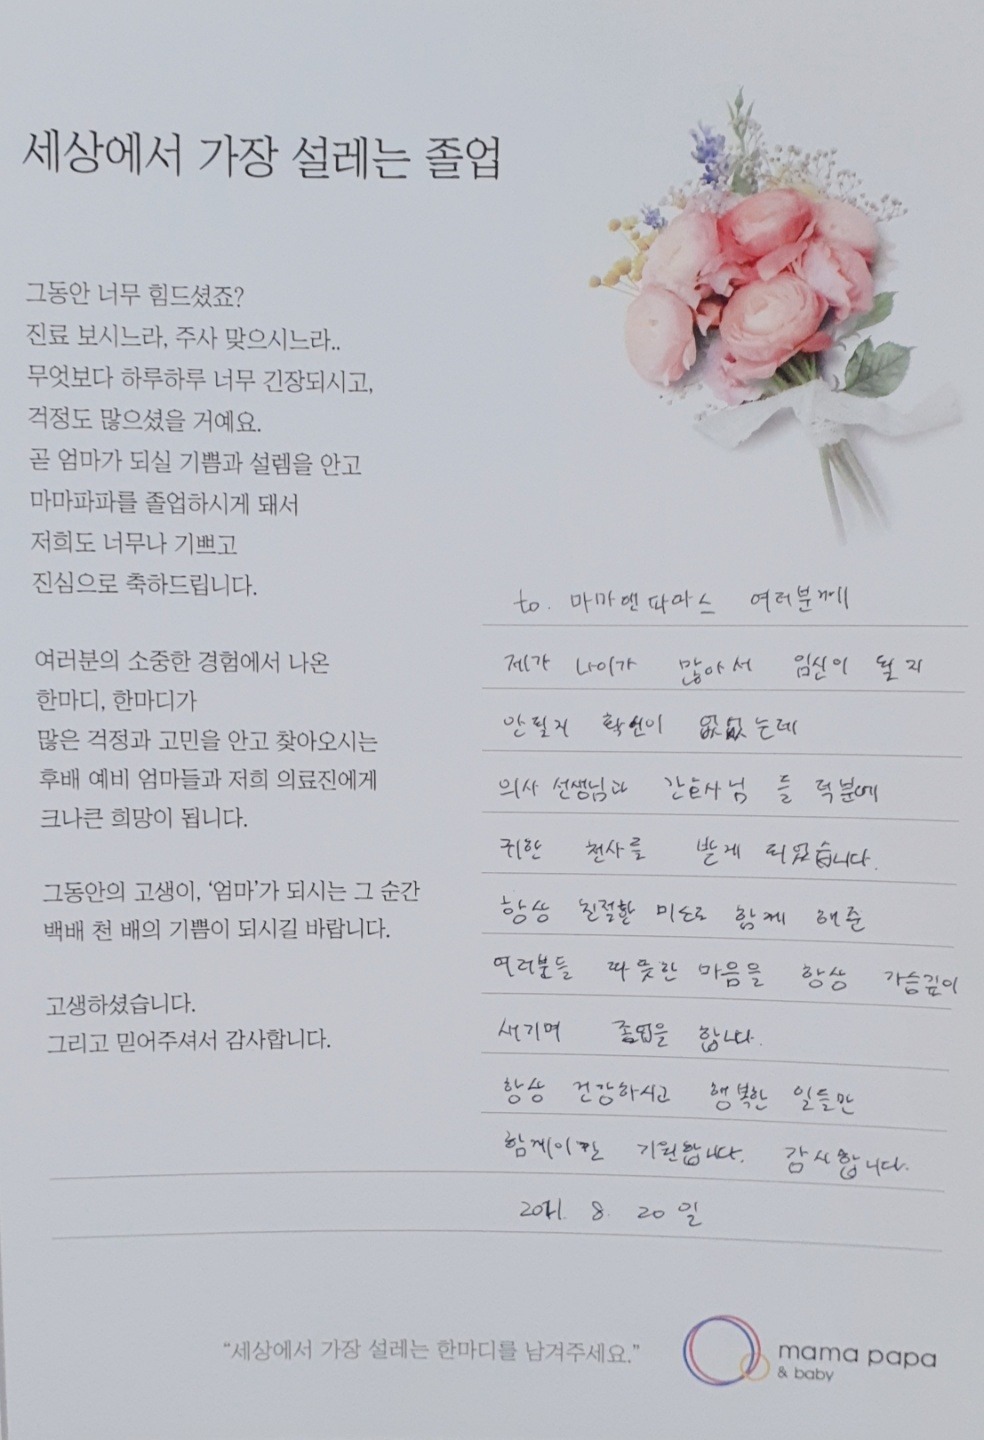 세상에서 가장 설레는 졸업
그동안 너무 힘드셨죠?
진료 보시느라, 주사 맞으시느라..
무엇보다 하루하루 너무 긴장되시고,
걱정도 많으셨을 거예요.
곧 엄마가 되실 기쁨과 설렘을 안고
마마파파를 졸업하시게 돼서
저희도 너무나 기쁘고
진심으로 축하드립니다.
여러분의 소중한 경험에서 나온
한마디, 한마디가
많은 걱정과 고민을 안고 찾아오시는
후배 예비 엄마들과 저희 의료진에게
크나큰 희망이 됩니다.
그동안의 고생이, '엄마'가 되시는 그 순간
백배 천 배의 기쁨이 되시길 바랍니다.
고생하셨습니다.
그리고 믿어주셔서 감사합니다.
to. 마마앤파파스 여러분께
제가 나이가 많아서 임신이 될지
안될지 확신이 없었는데
의사 선생님과 간호사님 들 덕분에
귀한 천사를 받게 되었습니다.
항상 친절한 미소로 함께 해준
여러분들 따뜻한 마음을 항상 가슴깊이
새기며 졸업을 합니다.
항상 건강하시고 행복한 일들만
함께이길 기원합니다. 감사합니다.
2021. 8. 20일
"세상에서 가장 설레는 한마디를 남겨주세요."
mama papa
& baby